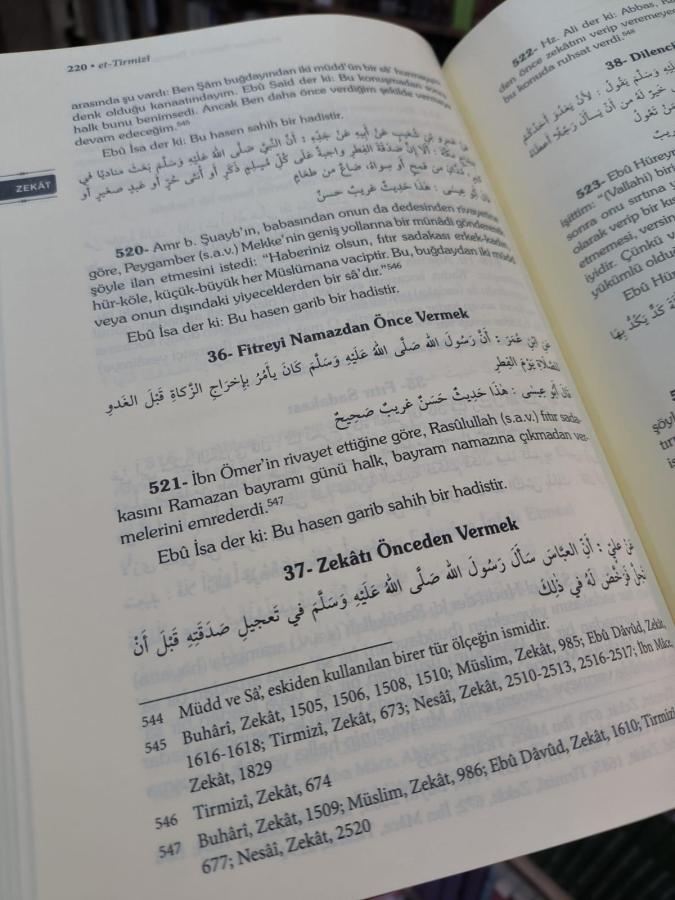 220 • et-Tirmizî
arasında şu vardı: Ben Şâm buğdayından iki müdd'ün bir sâ' hurmayaın
denk olduğu kanaatındayım. Ebû Said der ki: Bu konuşmadan sonra
halk bunu benimsedi. Ancak Ben daha önce verdiğim şekilde vermeye
devam edeceğim.⁵⁴⁵
Ebû İsa der ki: Bu hasen sahih bir hadistir.
عَنْ عَمْرِو بْنِ شُعَيْبٍ عَنْ أَبِيهِ عَنْ جَدِّهِ : أَنَّ النَّبِيَّ صَلَّى اللَّهُ عَلَيْهِ وَسَلَّمَ بَعَثَ مُنَادِيًا فِي
فِجَاجِ مَكَّةَ : أَلَا إِنَّ صَدَقَةَ الْفِطْرِ وَاجِبَةٌ عَلَى كُلِّ مُسْلِمٍ ذَكَرٍ أَوْ أُنْثَى حُرٍّ أَوْ عَبْدٍ صَغِيرٍ أَوْ
كَبِيرٍ : مُدَّانِ مِنْ قَمْحٍ أَوْ سِوَاهُ صَاعٌ مِنْ طَعَامٍ
قَالَ أَبُو عِيسَى : هَذَا حَدِيثٌ غَرِيبٌ حَسَنٌ
ZEKÂT
520- Amr b. Şuayb'ın, babasından onun da dedesinden rivayetine
göre, Peygamber (s.a.v.) Mekke'nin geniş yollarına bir münâdî göndererek
şöyle ilan etmesini istedi: “Haberiniz olsun, fıtır sadakası erkek-kadın,
hür-köle, küçük-büyük her Müslümana vaciptir. Bu, buğdaydan iki müdd
veya onun dışındaki yiyeceklerden bir sâ'dır.”⁵⁴⁶
Ebû İsa der ki: Bu hasen garib bir hadistir.
36- Fitreyi Namazdan Önce Vermek
عَنِ ابْنِ عُمَرَ : أَنَّ رَسُولَ اللَّهِ صَلَّى اللَّهُ عَلَيْهِ وَسَلَّمَ كَانَ يَأْمُرُ بِإِخْرَاجِ الزَّكَاةِ قَبْلَ الْغَدُوِّ
لِلصَّلَاةِ يَوْمَ الْفِطْرِ
قَالَ أَبُو عِيسَى : هَذَا حَدِيثٌ حَسَنٌ غَرِيبٌ صَحِيحٌ
521- İbn Ömer'in rivayet ettiğine göre, Rasûlullah (s.a.v.) fıtır sada-
kasını Ramazan bayramı günü halk, bayram namazına çıkmadan ver-
melerini emrederdi.⁵⁴⁷
Ebû İsa der ki: Bu hasen garib sahih bir hadistir.
37- Zekâtı Önceden Vermek
عَنْ عَلِيٍّ : أَنَّ الْعَبَّاسَ سَأَلَ رَسُولَ اللَّهِ صَلَّى اللَّهُ عَلَيْهِ وَسَلَّمَ فِي تَعْجِيلِ صَدَقَتِهِ قَبْلَ أَنْ
تَحِلَّ فَرَخَّصَ لَهُ فِي ذَلِكَ
544 Müdd ve Sâ', eskiden kullanılan birer tür ölçeğin ismidir.
545 Buhârî, Zekât, 1505, 1506, 1508, 1510; Müslim, Zekât, 985; Ebû Dâvûd, Zekât,
1616-1618; Tirmizî, Zekât, 673; Nesâî, Zekât, 2510-2513, 2516-2517; İbn Mâce,
Zekât, 1829
546 Tirmizî, Zekât, 674
547 Buhârî, Zekât, 1509; Müslim, Zekât, 986; Ebû Dâvûd, Zekât, 1610; Tirmizî
677; Nesâî, Zekât, 2520
522- Hz. Ali der ki: Abbas,
den önce zekâtını verip veremeye
bu konuda ruhsat verdi.⁵⁴⁸
38- Dilenci
عَلَيْهِ وَسَلَّمَ يَقُولُ : لَأَنْ يَغْدُوَ أَحَدُكُمْ
خَيْرٌ لَهُ مِنْ أَنْ يَسْأَلَ رَجُلًا أَعْطَاهُ
مَنْ تَعُولُ
غَرِيبٌ
523- Ebû Hüreyr
işittim: “(Vallahi) biri
sonra onu sırtına y
olarak verip bir kıs
etmemesi, versin
iyidir. Çünkü v
yükümlü olduğ
Ebû Hür
كَدٌّ يَكُدُّ بِهَا
şöyl
tır